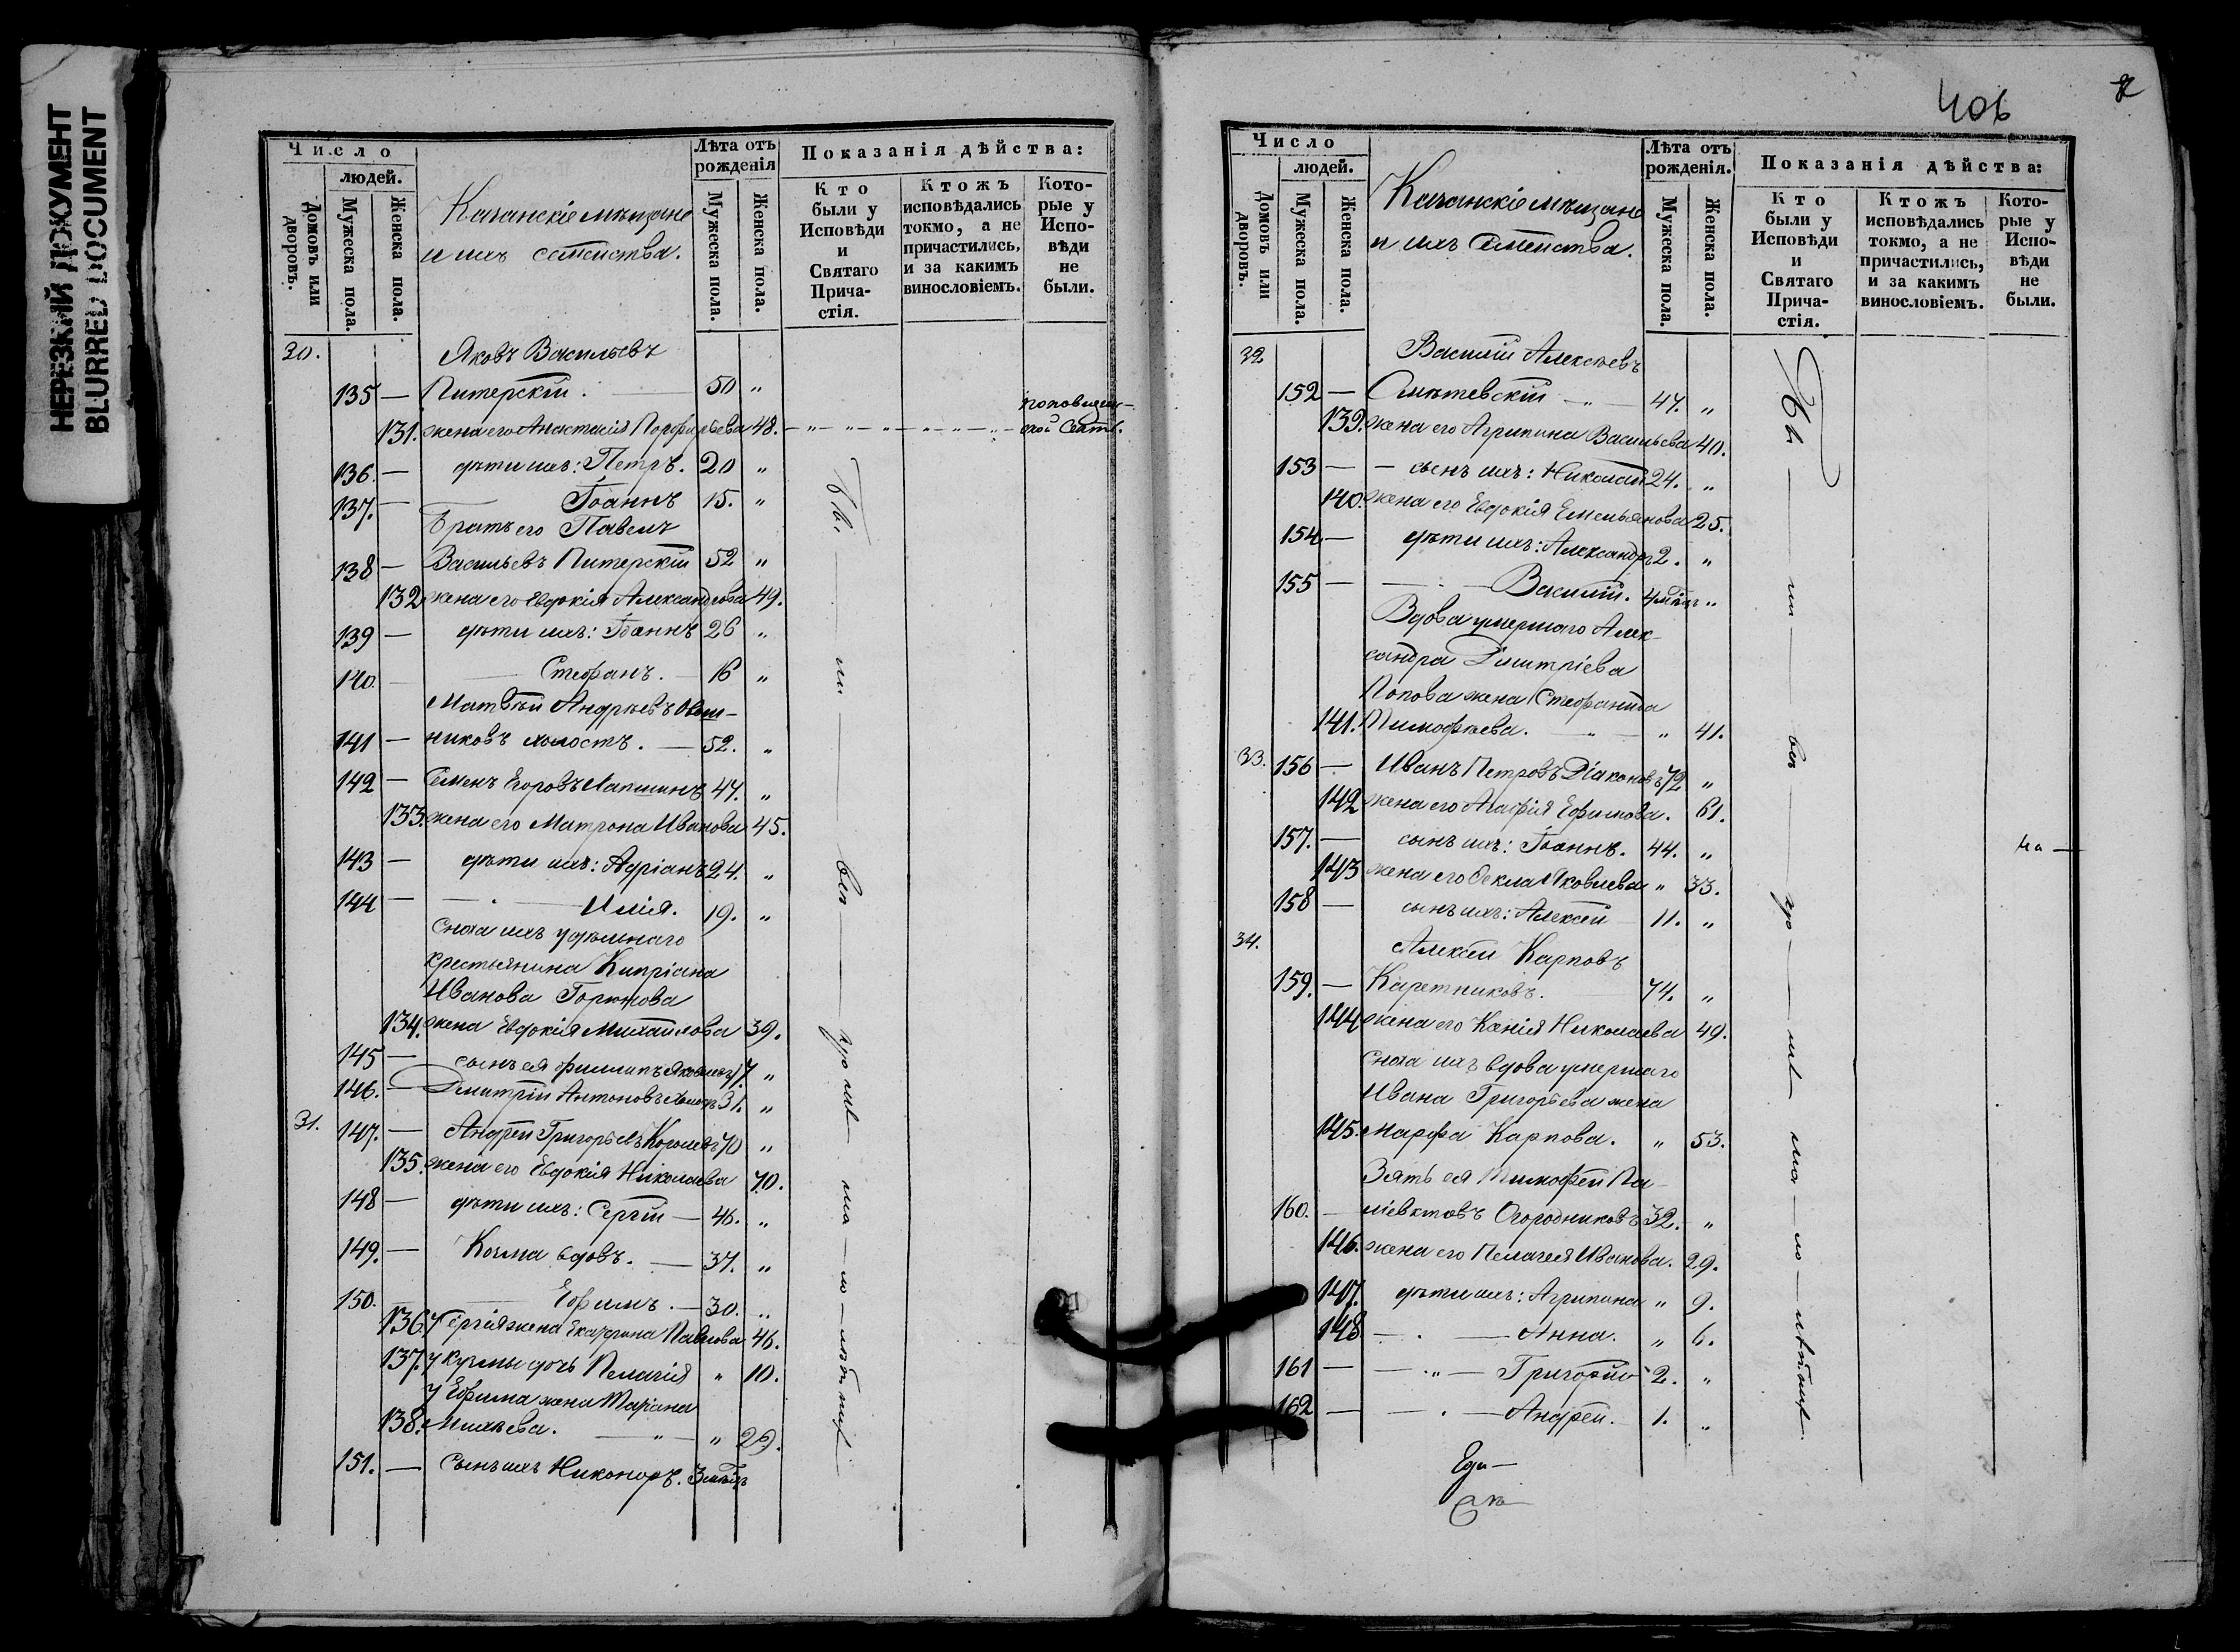 НЕРЕЗКИЙ ДОКУМЕНТ
BLURRED DOCUMENT
Число
людей.
Домовъ или дворовъ.
Мужеска пола.
Женска пола.
Казанскіе мѣщане
и ихъ семейства.
Лѣта отъ рожденія
Мужеска пола.
Женска пола.
Показанія дѣйства:
Кто были у Исповѣди и Святаго Прича-стія.
Ктожъ исповѣдались токмо, а не причастились, и за какимъ винословіемъ.
Кото-рые у Испо-вѣди не были.
30. Яковъ Васильевъ
135 — Питерскій. — 50 "
131. жена его Анастасія Порфирьева 48.
136. — дѣти ихъ: Петръ. 20 "
137. — Іоаннъ 15. "
Братъ его Павелъ
138 — Васильевъ Питерскій 52 "
132 жена его Евдокія Александрова 49.
139 — дѣти ихъ: Іоаннъ 26 "
140. — Стефанъ. — 16 "
Матвѣй Андреевъ
141 — никовъ холостъ. — 52. "
142 — Семенъ Егоровъ Лапшинъ 47. "
133. жена его Матрона Иванова 45.
143 — дѣти ихъ: Адріанъ 24. "
144 — Илія. 19. "
Сноха ихъ удѣльнаго
крестьянина Кипріана
Иванова
134. жена Евдокія Михайлова 39.
145 — сынъ ея Филиппъ Яковлевъ 17 "
146. — Дмитрій Антоновъ 31. "
31. 147. — Андрей Григорьевъ 70 "
135. жена его Евдокія Николаева 70.
148 — дѣти ихъ: Сергій — 46. "
149. — Козма вдовъ. — 37. "
150. Ефимъ. — 30. "
136. У Сергія жена Екатерина Павлова 46.
137. у Кузмы дочь Пелагія " 10.
у Ефима жена Маріана
138. — " — " 29.
151. — Сынъ ихъ Никоноръ. 3 мѣсц
406
Число
людей.
Домовъ или дворовъ.
Мужеска пола.
Женска пола.
Казанскіе мѣщане
и ихъ семейства.
Лѣта отъ рожденія.
Мужеска пола.
Женска пола.
Показанія дѣйства:
Кто были у Исповѣди и Святаго Прича-стія.
Ктожъ исповѣдались токмо, а не причастились, и за какимъ винословіемъ.
Кото-рые у Испо-вѣди не были.
32 Василій Алексѣевъ
152 — — " — 47. "
139. жена его Агрипина Васильева 40.
153 — — сынъ ихъ: Николай 24. "
140. жена его Евдокія Емельянова 25.
154 — дѣти ихъ: Александръ 2. "
155 — Василій. 4 мѣсц "
Вдова умершаго Алек-
сандра Димитріева
Попова жена Стефанида
141. Тимофѣева. — " — " 41.
33. 156 — Иванъ Петровъ Діаконовъ 72 "
142 жена его Агафія Ефимова. 61.
157. — сынъ ихъ: Іоаннъ. 44. "
143 жена его Ѳекла Яковлева " 33.
158 — сынъ ихъ: Алексѣй 11. "
34. Алексѣй Карповъ
159. — Каретниковъ. 74. "
144 жена его Ксенія Николаева 49.
Сноха ихъ вдова умершаго
Ивана Григорьева жена
145. Марфа Карпова. " 53.
Зять ея Тимофей По-
160. — ліевктовъ Огородниковъ 32. "
146. жена его Пелагея Иванова. 29.
147. дѣти ихъ: Агрипина " 9.
148 — Анна. " 6.
161 — — " — Григорій 2. "
162 — — Андрей. 1. "